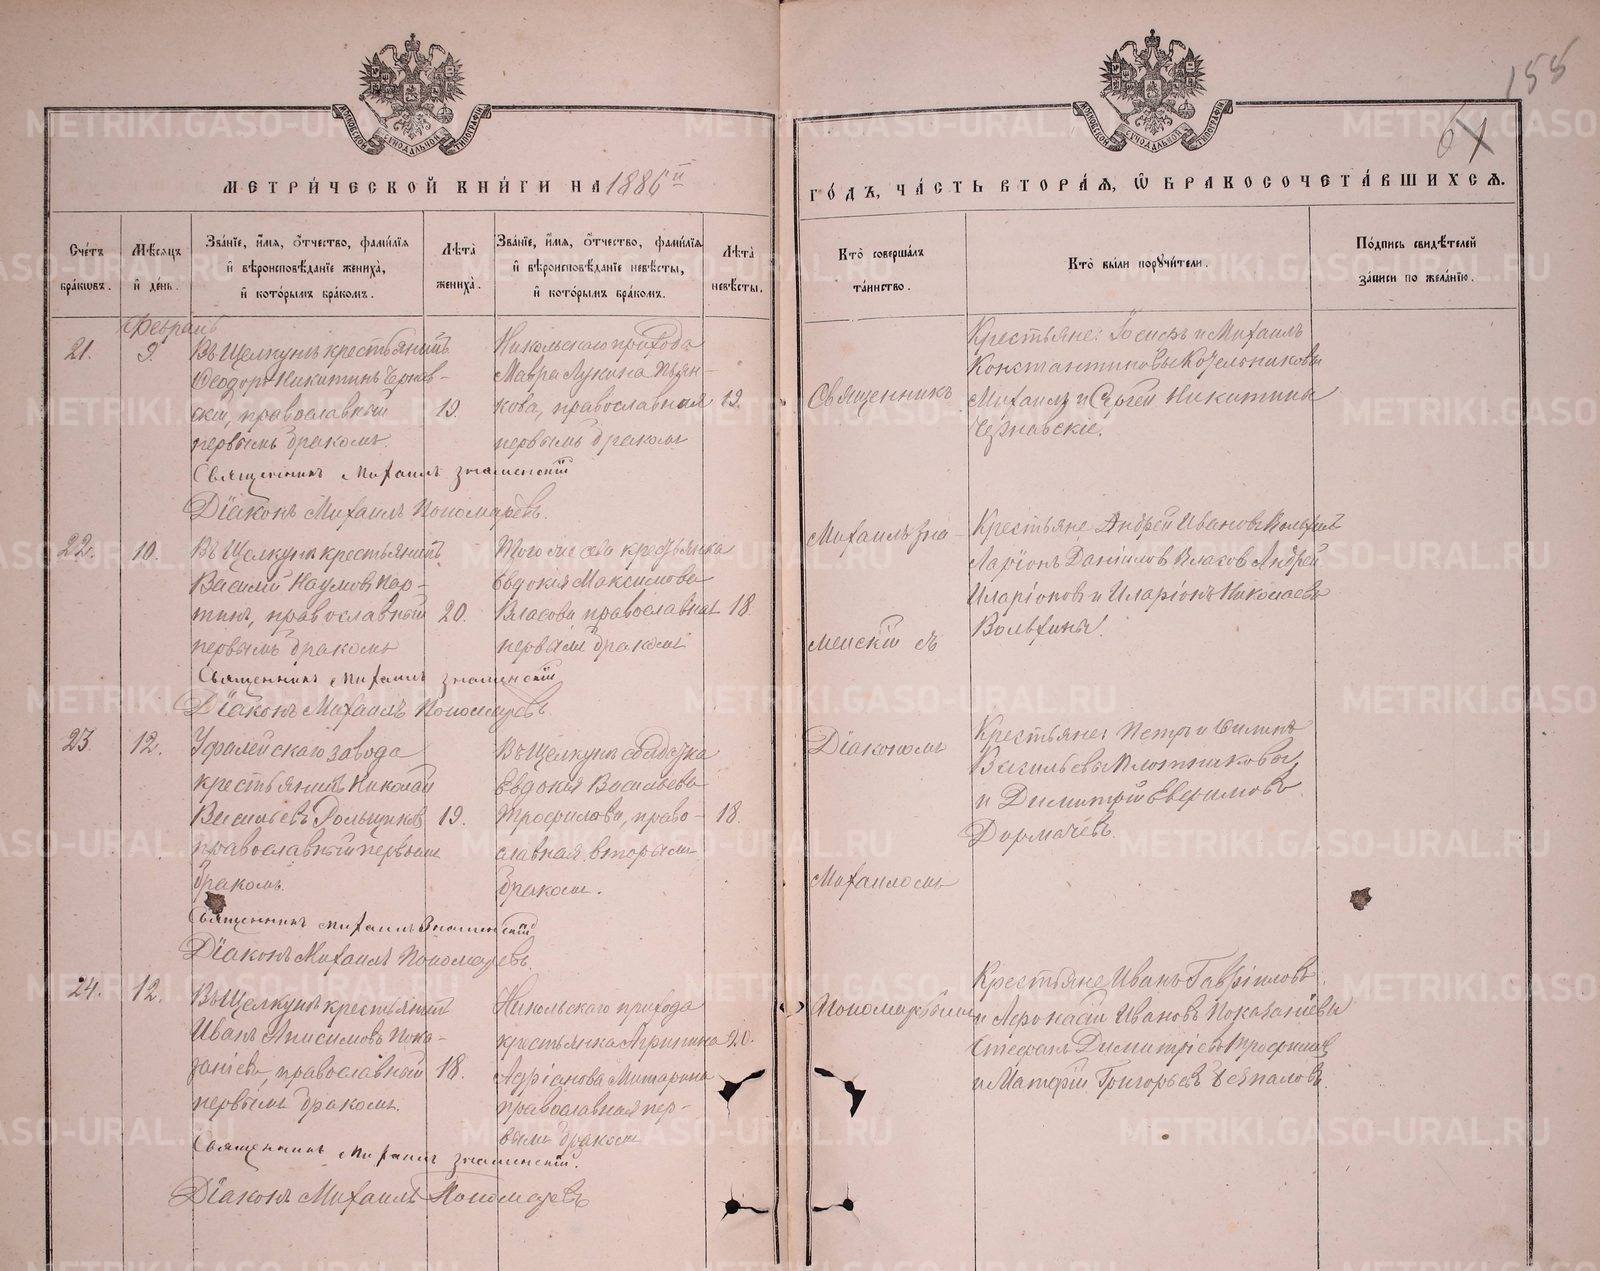 155
МОСКОВСКОЙ СѴНОДАЛЬНОЙ ТИПОГРАФІИ
МОСКОВСКОЙ СѴНОДАЛЬНОЙ ТИПОГРАФІИ
МЕТРИЧЕСКОЙ КНИГИ НА 1886й
ГОДЪ, ЧАСТЬ ВТОРАЯ, Ѿ БРАКОСОЧЕТАВШИХСЯ.
Счетъ браковъ.
Мѣсяцъ и день.
Званіе, имя, отчество, фамилія
и вѣроисповѣданіе жениха,
и которымъ бракомъ.
Лѣта жениха.
Званіе, имя, отчество, фамилія
и вѣроисповѣданіе невѣсты,
и которымъ бракомъ.
Лѣта невѣсты.
Кто совершалъ таинство.
Кто были поручители.
Подпись свидѣтелей
записи по желанію.
Февраль
21.
9.
Въ Щелкунѣ крестьянинъ
Ѳеодоръ Никитинъ Черняв-
скій, православный
первымъ бракомъ
19.
Никольскаго прихода
Мавра Лукина Пьян-
кова, православная
первымъ бракомъ
19.
Крестьяне: Іосифъ и Михаилъ
Константиновы Котельниковы
Михаилъ и Сергѣй Никитины
Чернавскіе.
Священникъ Михаилъ Знаменскій
Діаконъ Михаилъ Пономаревъ.
22.
10.
Въ Щелкунѣ крестьянинъ
Василій Наумовъ
православный
первымъ бракомъ
20.
Того же села крестьянка
Евдокія Максимова
Власова православная
первымъ бракомъ
18.
Крестьяне, Андрей Ивановъ
Ларіонъ Даніиловъ Власовъ Андрей
Иларіоновъ и Иларіонъ Николаевъ
Священникъ Михаилъ Знаменскій
Діаконъ Михаилъ Пономаревъ
23.
12.
Уфалейскаго завода
крестьянинъ Николай
Васильевъ Гольщиковъ
православный первымъ
бракомъ.
19.
Въ Щелкунѣ солдатка
Евдокія Васильева
Трофилова, право-
славная вторымъ
бракомъ.
18.
Крестьяне: Петръ и Филипъ
Васильевы Плотниковы
и Димитрій Евфимовъ
Дормачевъ.
Священникъ Михаилъ Знаменскій
Діаконъ Михаилъ Пономаревъ.
24.
12.
Въ Щелкунѣ крестьянинъ
Иванъ Анисимовъ Пока-
заніевъ, православный
первымъ бракомъ.
18.
Никольскаго прихода
крестьянка Агрипина
Адріанова
православная пер-
вымъ бракомъ
20.
Крестьяне Иванъ Гавріиловъ
и Афонасій Ивановъ Показаніевы
Стефанъ Димитріевъ
и Матфій Григорьевъ Безпаловъ.
Священникъ Михаилъ Знаменскій.
Діаконъ Михаилъ Пономаревъ
Священникъ
Михаилъ Зна-
менскій съ
Діакономъ
Михаиломъ
Пономаревымъ
METRIKI.GASO-URAL.RU